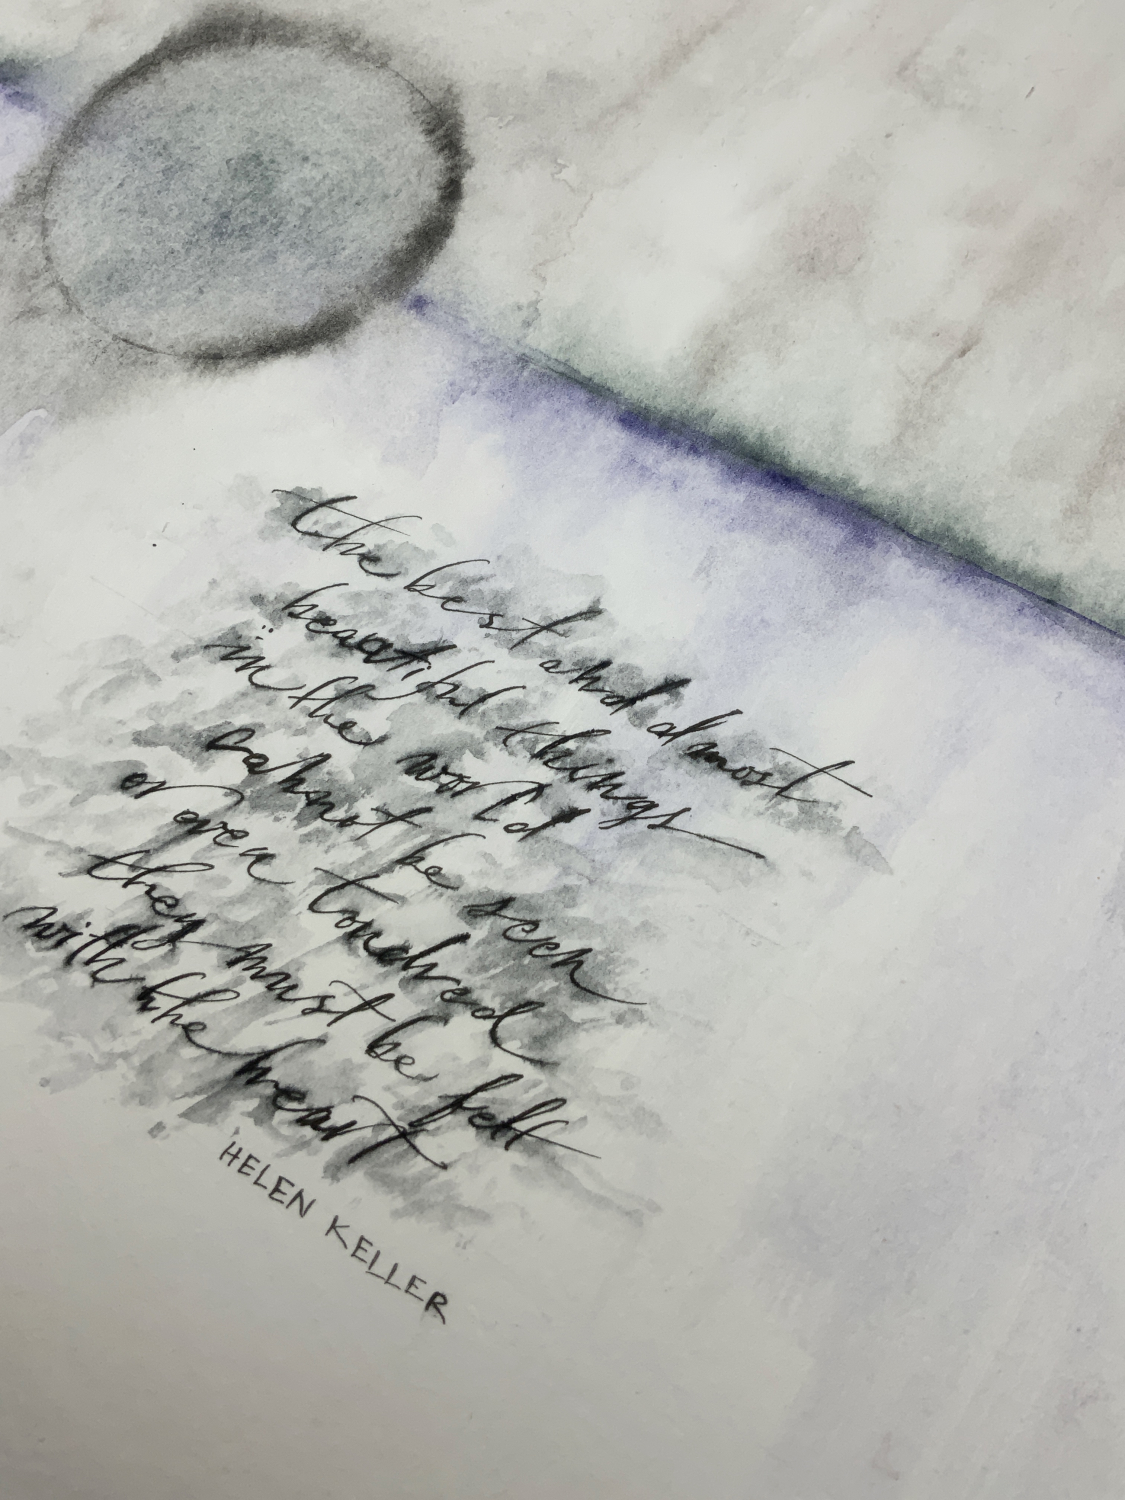 the best and almost
beautiful things
in the world
cannot be seen
or even touched
they must be felt
with the heart
HELEN KELLER